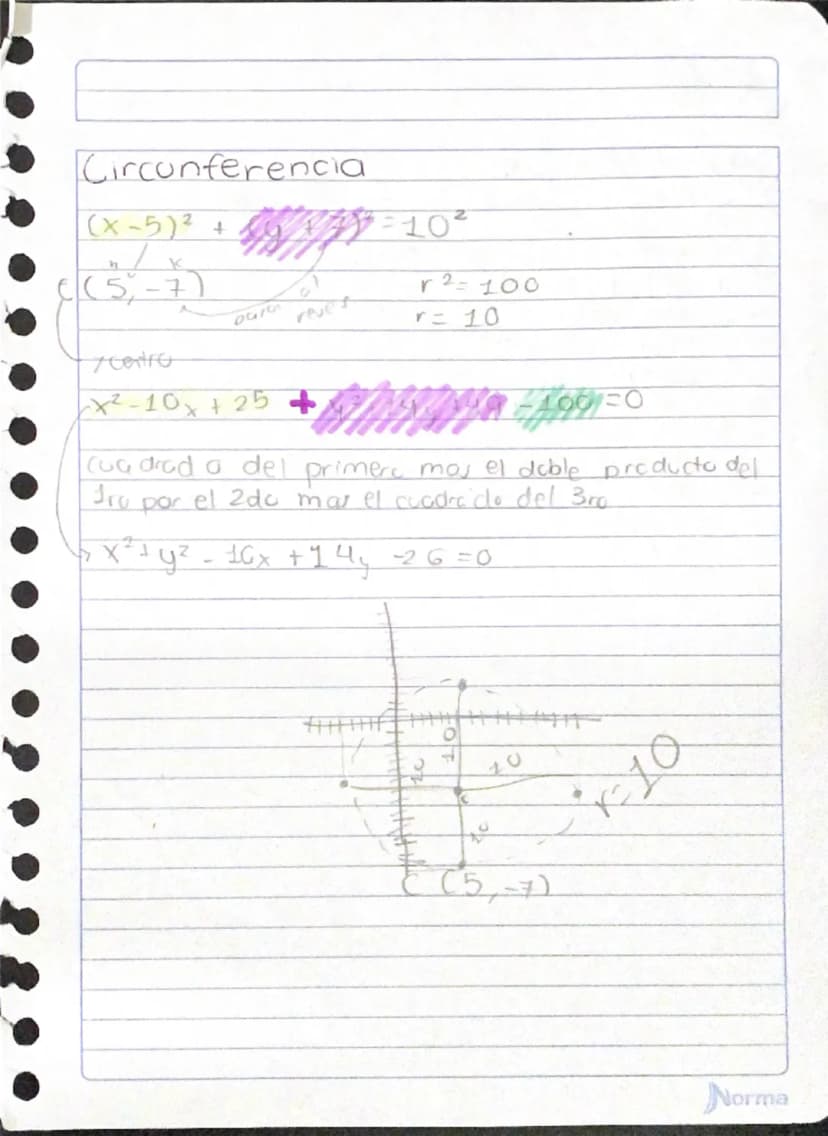 Circunferencia
(x-5)² + (y + 7)² = 10²
h k
C (5, -7) r² = 100
al
reves r = 10
centro
x² - 10x + 25 + y² + 14y + 49 - 100 = 0
cuadrado del primero mas el doble producto del
1ro por el 2do mas el cuadrado del 3ro
x² + y² - 10x + 14y - 26 = 0
10
10
10
10
r = 10
C (5, -7)
Norma